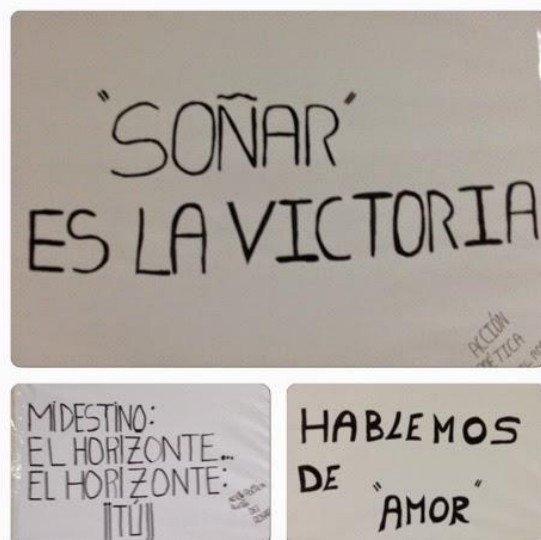 "SOÑAR"
ES LA VICTORIA
ACCIÓN
MI DESTINO:
EL HORIZONTE...
EL HORIZONTE:
¡¡TÚ!!
HABLEMOS
DE
"AMOR"